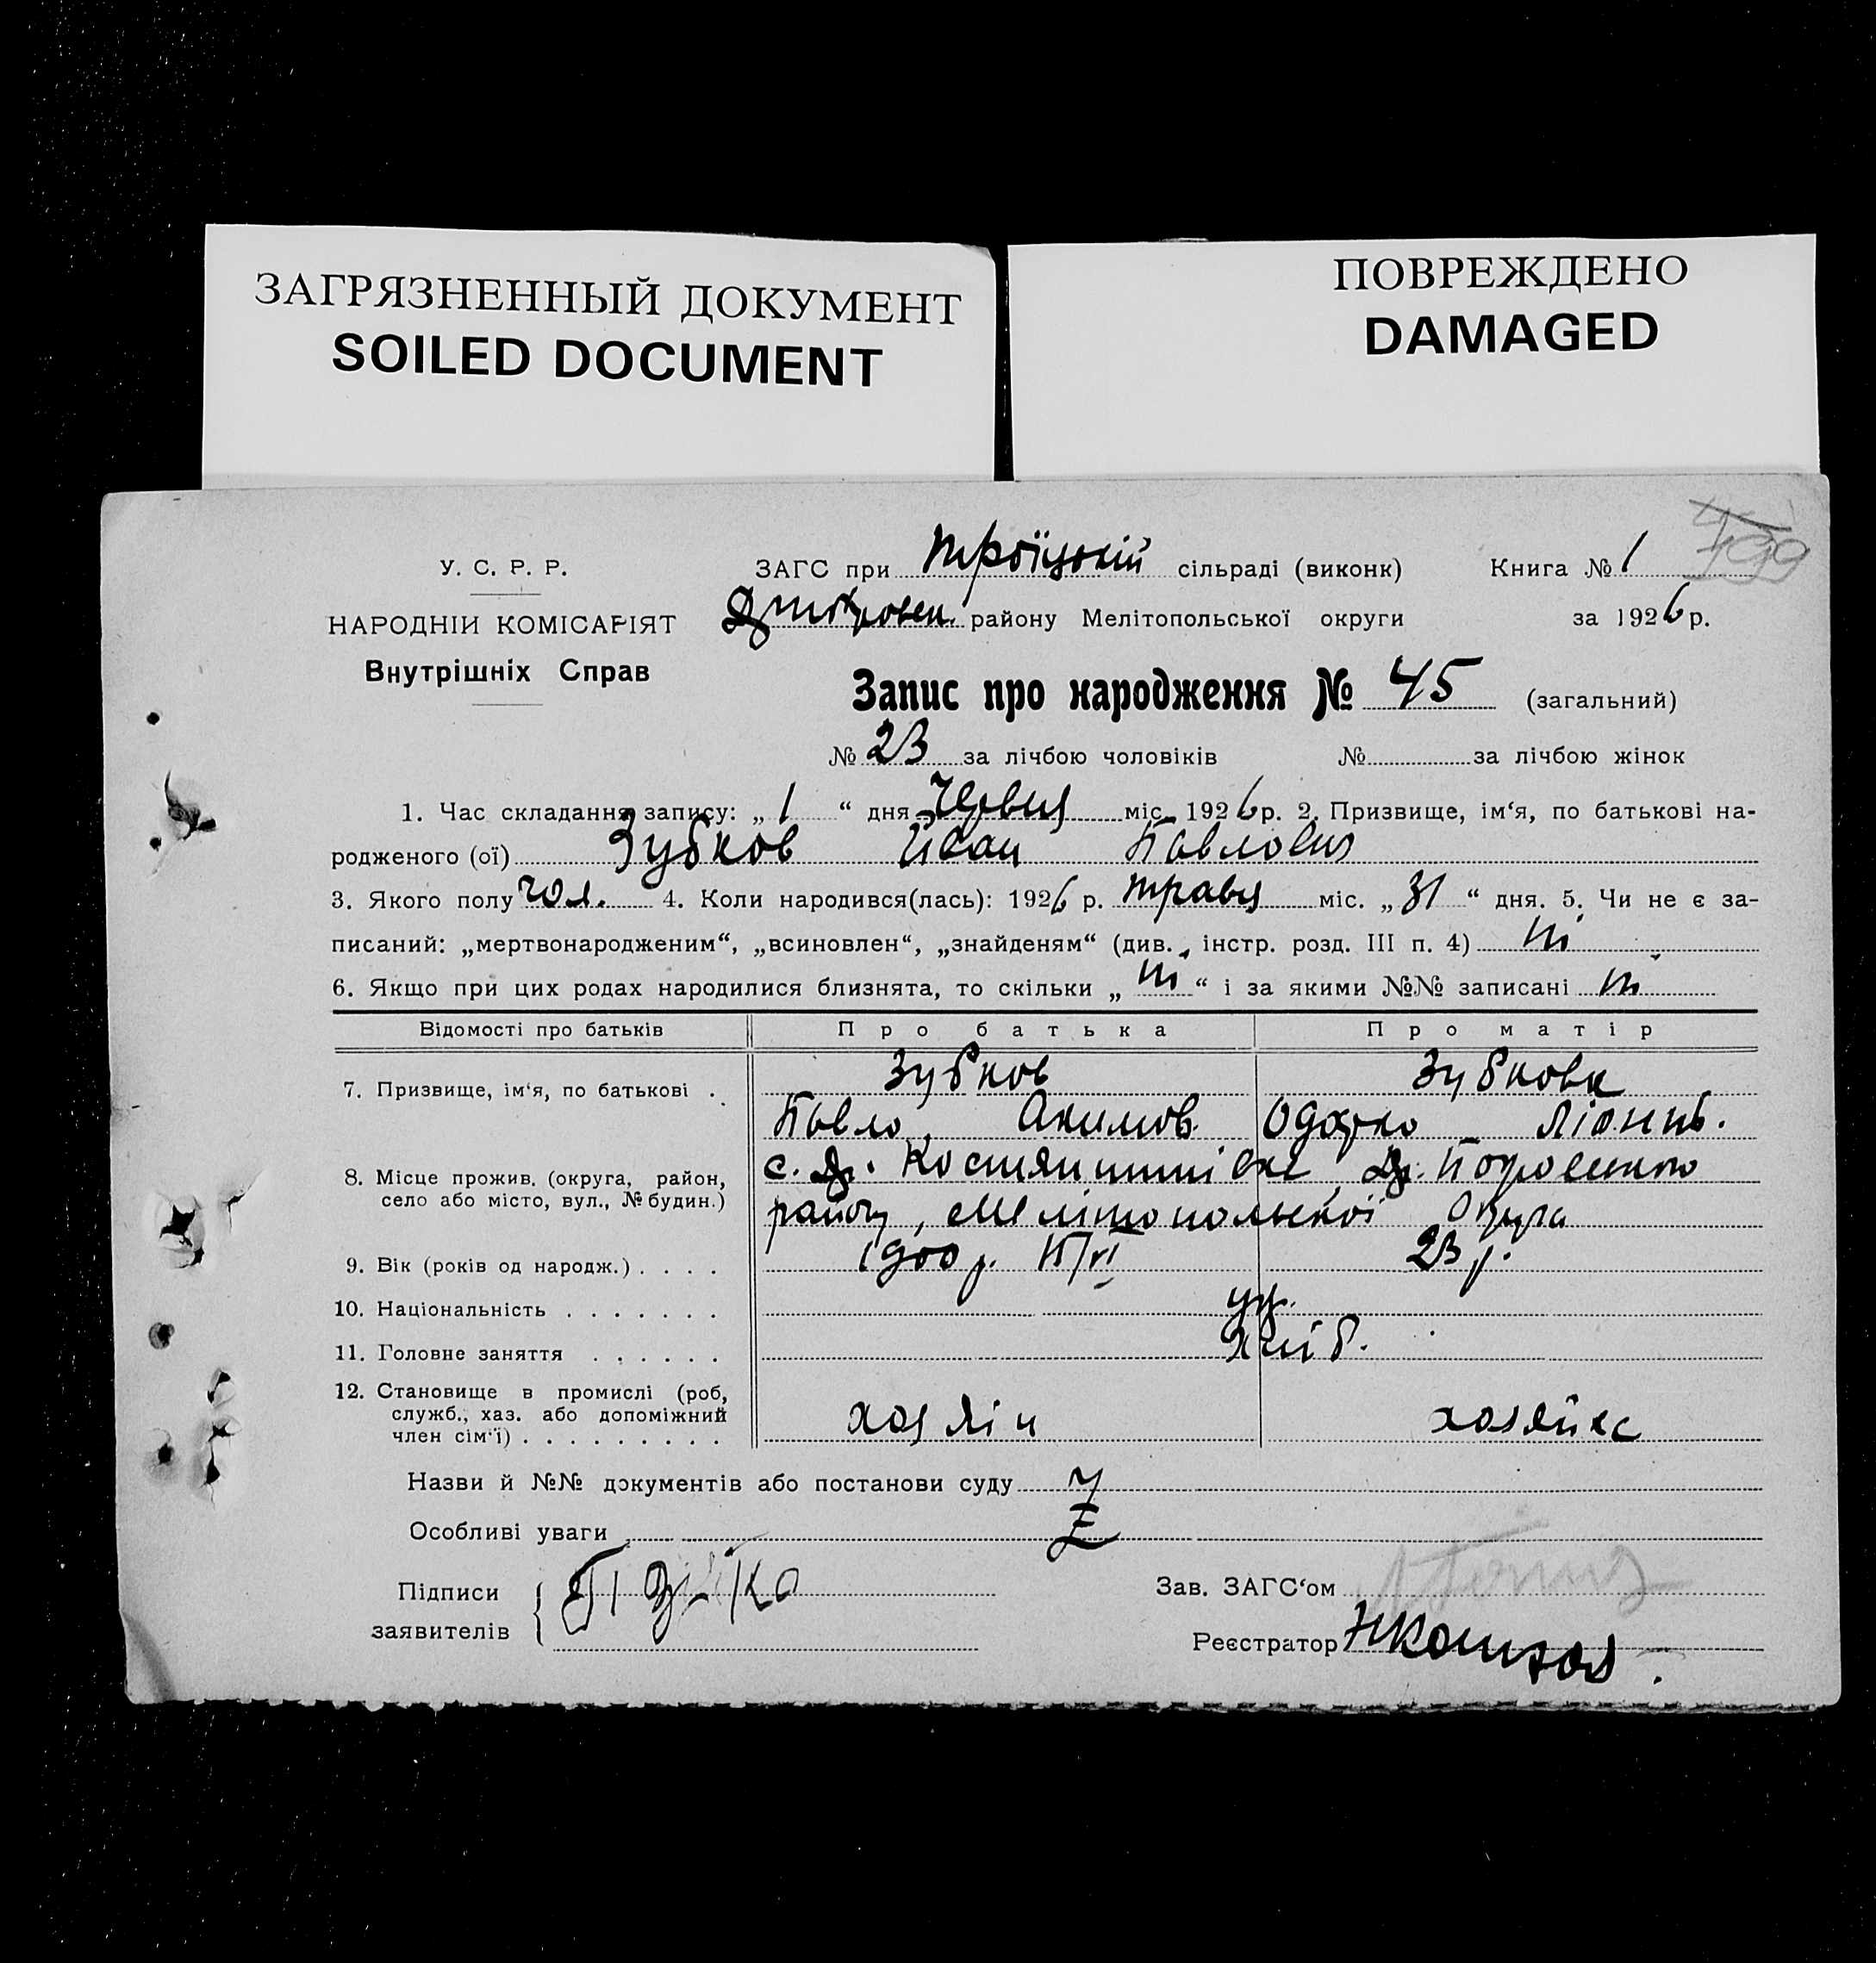 ЗАГРЯЗНЕННЫЙ ДОКУМЕНТ
SOILED DOCUMENT
ПОВРЕЖДЕНО
DAMAGED
У. С. Р. Р.
НАРОДНІИ КОМІСАРІЯТ
Внутрішніх Справ
ЗАГС при Троїцькій сільраді (виконк) Книга № 1
району Мелітопольської округи за 1926 р.
Запис про народження № 45 (загальний)
№ 23 за лічбою чоловіків № за лічбою жінок
1. Час складання запису: „ 1 “ дня Червня міс. 1926 р. 2. Призвище, ім‘я, по батькові на-
родженого (ої) Зубков Йван Павлович
3. Якого полу чол. 4. Коли народився(лась): 1926 р. травня міс. „ 31 “ дня. 5. Чи не є за-
писаний: „мертвонародженим“, „всиновлен“, „знайденям“ (див. інстр. розд. III п. 4) ні
6. Якщо при цих родах народилися близнята, то скільки „ ні “ і за якими №№ записані ні
Відомості про батьків Про батька Про матір
7. Призвище, ім‘я, по батькові . Зубков Зубкова
Павло Акимов. Одарка
8. Місце прожив. (округа, район, село або місто, вул., № будин.) с.
району, Мелітопольскої Округа
9. Вік (років од народж.) . . . . 1900 р. 23 р.
10. Національність . . . . . . . ук.
11. Головне заняття . . . . . . хліб.
12. Становище в промислі (роб, служб., хаз. або допоміжний член сім‘ї) . . . . . . . . . хозяін хозяйка
Назви й №№ документів або постанови суду
Особливі уваги
Підписи
заявителів
Зав. ЗАГС‘ом
Реєстратор